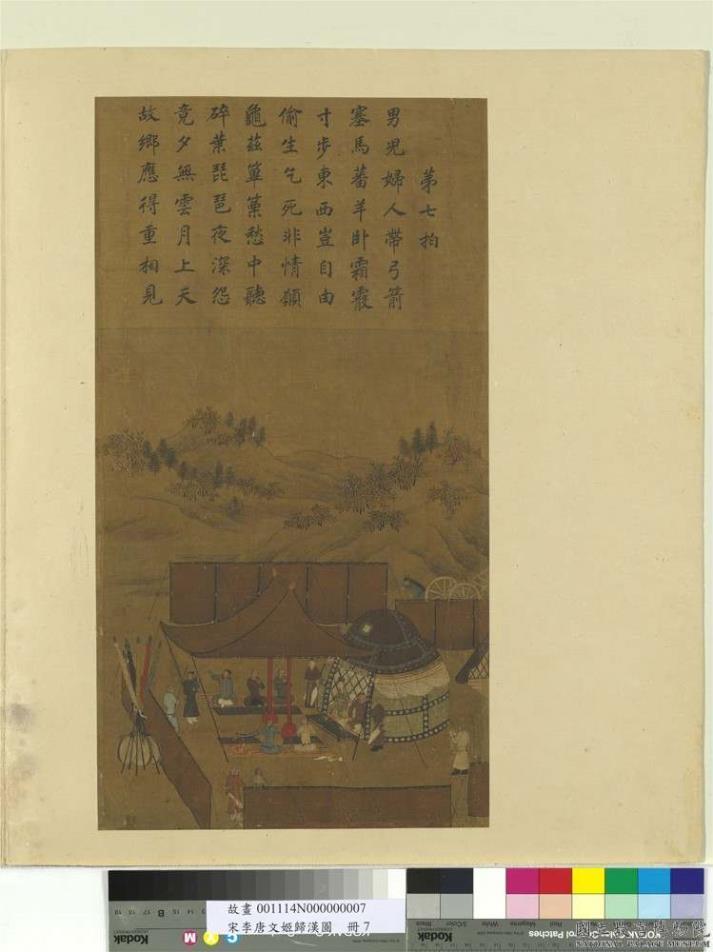 第七拍
男兒婦人帶弓箭
塞馬蕃羊卧霜霰
寸步東西豈自由
偷生乞死非情願
龜茲篳篥愁中聽
碎葉琵琶夜深怨
竟夕無雲月上天
故鄉應得重相見
故畫 001114N000000007
宋李唐文姬歸漢圖 冊 7
Kodak
Kodak
B
M
Y
C
Black
3/Color
White
Magenta
NATIONAL PALACE MUSEUM